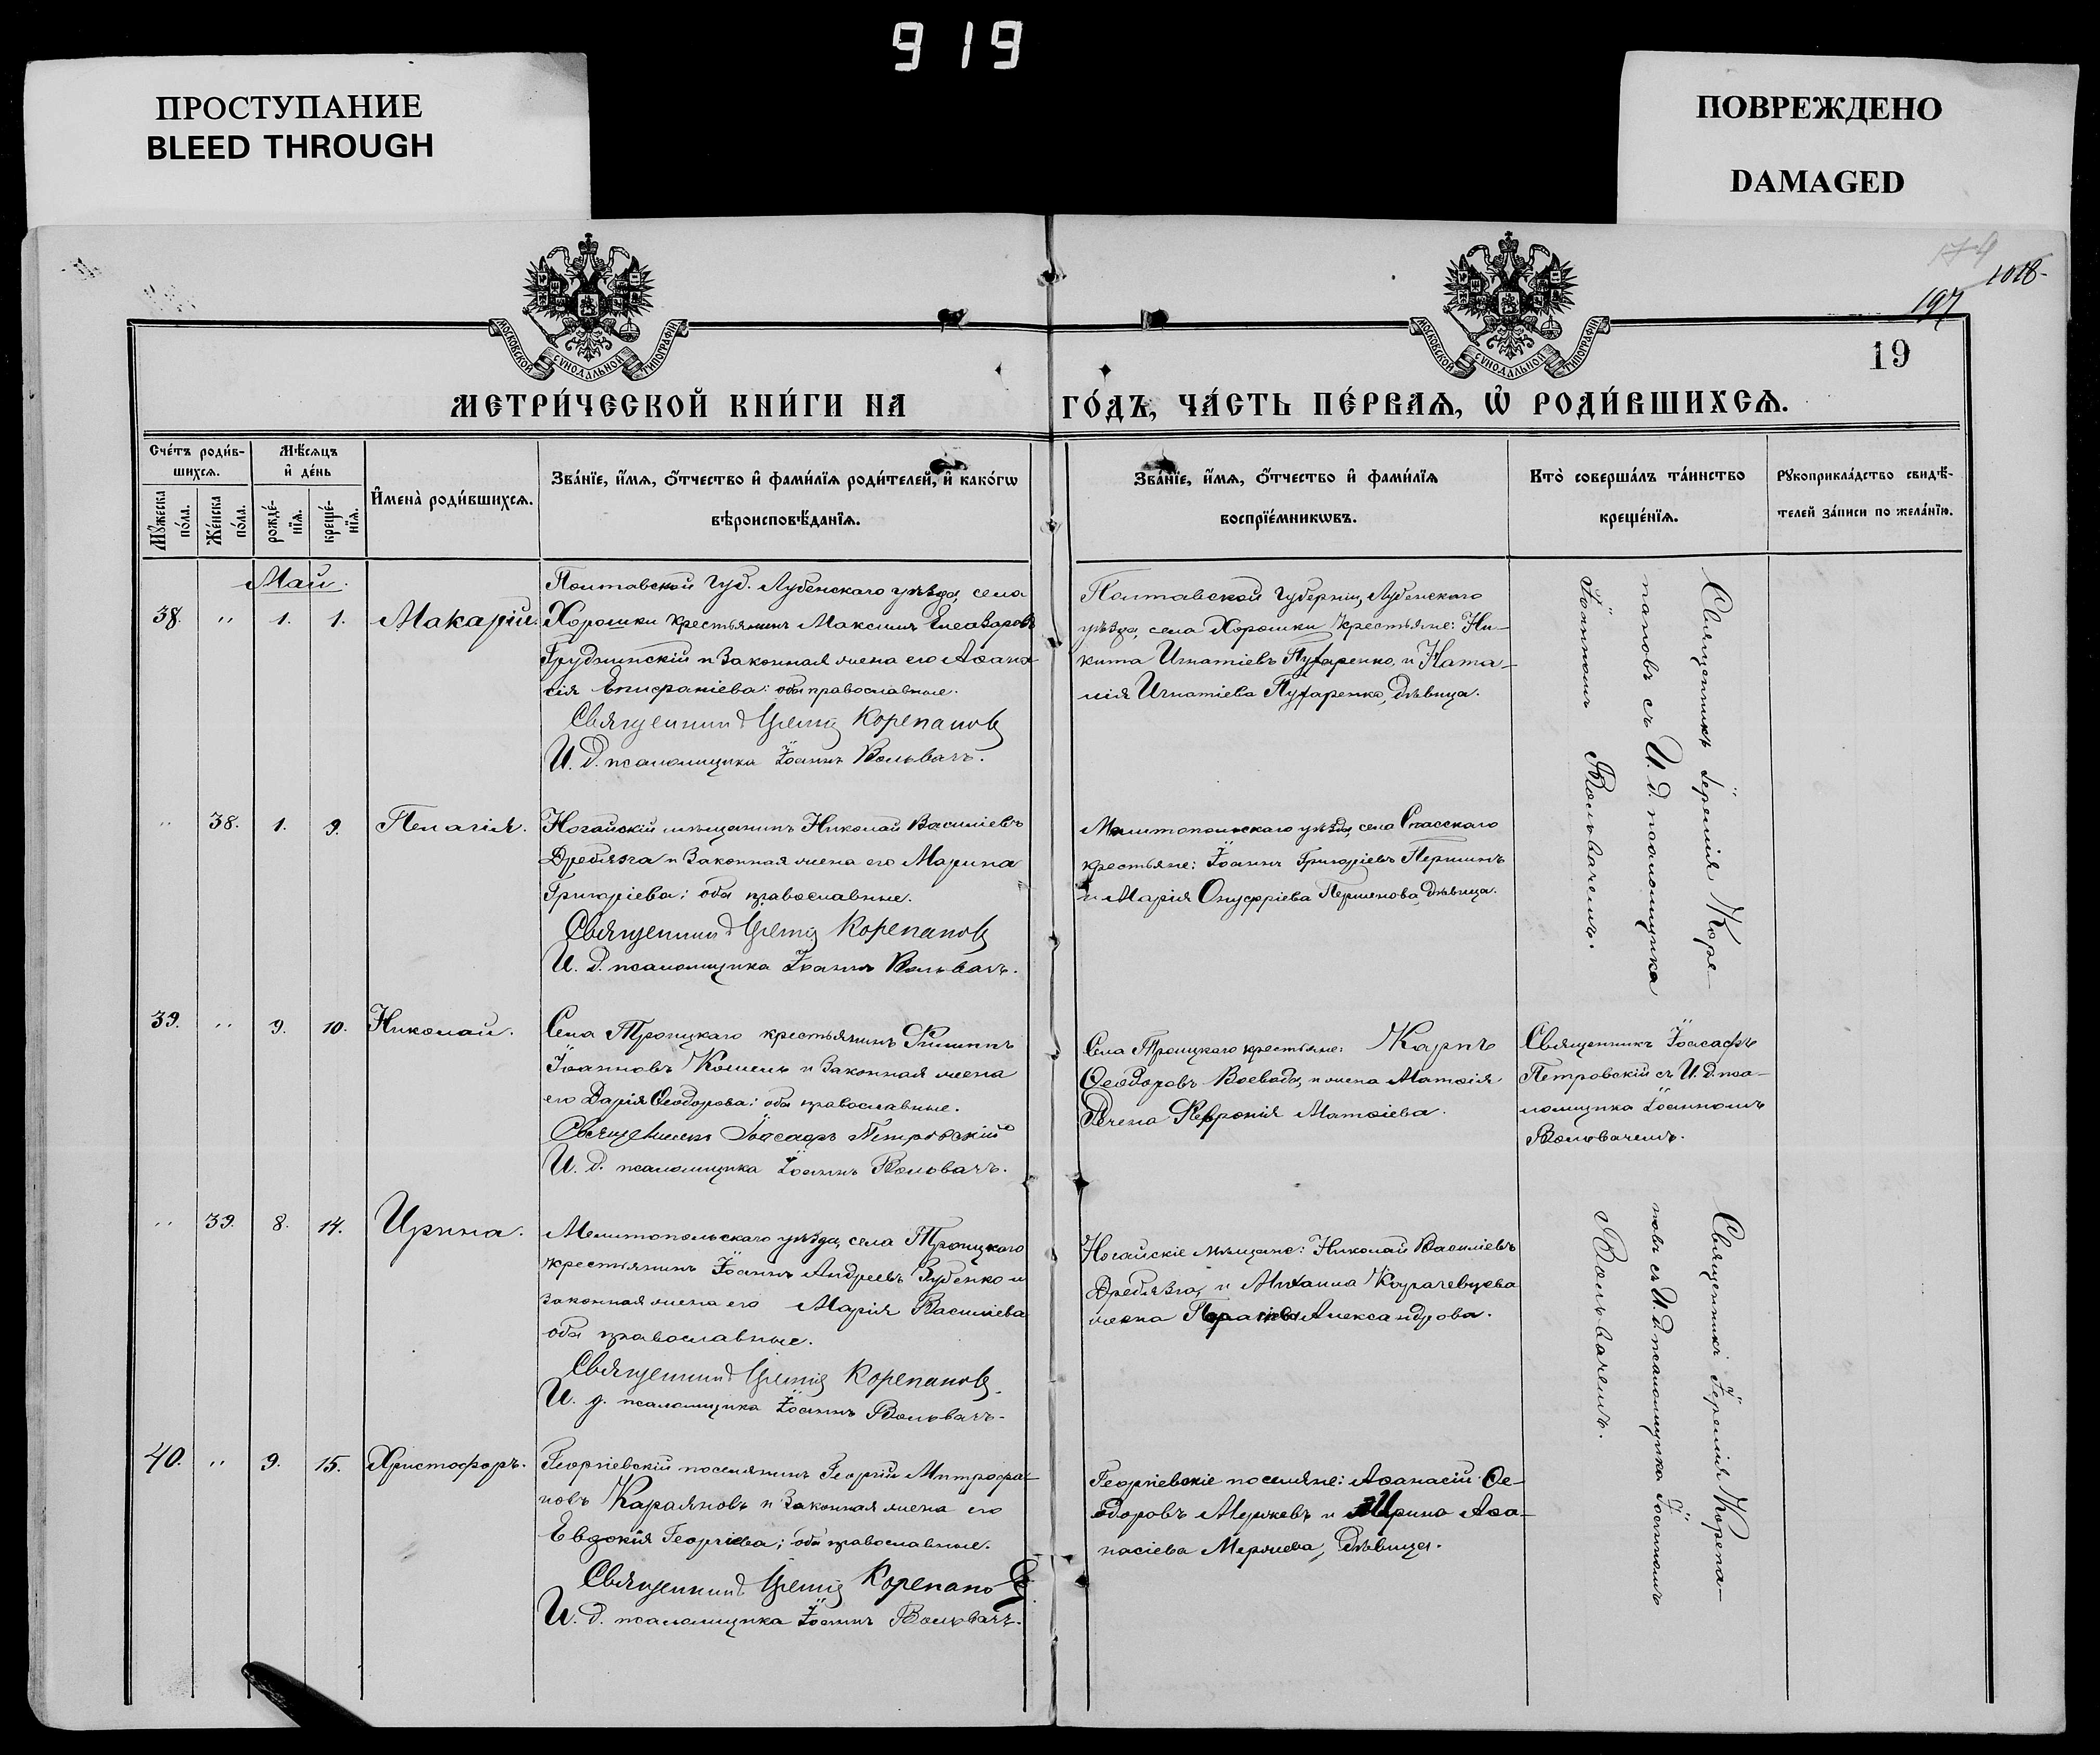 919
ПРОСТУПАНИЕ
BLEED THROUGH
ПОВРЕЖДЕНО
DAMAGED
1018-
197
19
МОСКОВСКОЙ СѴНОДАЛЬНОЙ ТИПОГРАФІИ
МОСКОВСКОЙ СѴНОДАЛЬНОЙ ТИПОГРАФІИ
МЕТРИ́ЧЕСКОЙ КНИ́ГИ НА
ГО́ДЪ, ЧА́СТЬ ПЕ́РВАѦ, Ѡ҆ РОДИ́ВШИХСѦ.
Сче́тъ роди́в-
шихсѧ.
Мꙋ́жеска по́ла.
Же́нска по́ла.
Мѣ́сѧцъ
и҆ де́нь
рожде́-
нїѧ.
креще́-
нїѧ.
И҆мена̀ роди́вшихсѧ.
Зва́нїе, и҆́мѧ, ѻ҆́тчество и҆ фами́лїѧ роди́телей, и҆ како́гѡ
вѣроисповѣ́данїѧ.
Зва́нїе, и҆́мѧ, ѻ҆́тчество и҆ фами́лїѧ
воспрїе́мникѡвъ.
Кто̀ соверша́лъ та́инство
креще́нїѧ.
Рꙋкоприкла́дство свидѣ́-
телей за́писи по жела́нїю.
Май.
38. " 1. 1. Макарій.
Полтавской губ. Лубенскаго уѣзда, села
Хорошки крестьянинъ Максимъ Елеазаровъ
Грудницскій и законная жена его Аѳана-
сія Епифаніева: оба православные.
Священникъ Іеремія Корепановъ
И. д. псаломщика Іоаннъ Вольвачъ.
Полтавской губерніи, Лубенскаго
уѣзда, села Хорошки крестьяне: Ни-
кита Игнатіевъ и Ната-
лія Игнатіева дѣвица.
Священникъ Іеремія Коре-
пановъ съ И. д. псаломщика
Іоанномъ Вольвачемъ.
" 38. 1. 9. Пелагія.
Ногайскій мѣщанинъ Николай Василіевъ
Дребязга и законная жена его Марина
Григоріева: оба православные.
Священникъ Іеремія Корепановъ
И. д. псаломщика Іоаннъ Вольвачъ.
Мелитопольскаго уѣзда, села Спасскаго
крестьяне: Іоаннъ Григоріевъ
и Марія Онуфріева дѣвица.
39. " 9. 10. Николай.
Села Троицкаго крестьянинъ Филиппъ
Іоанновъ и законная жена
его Дарія Ѳеодорова: оба православные.
Священникъ Іоасафъ Петровскій
И. д. псаломщика Іоаннъ Вольвачъ.
Села Троицкаго крестьяне: Карпъ
Ѳеодоровъ Воевода, и жена Матѳія
Февронія Матѳіева.
Священникъ Іоасафъ
Петровскій съ И. д. пса-
ломщика Іоанномъ
Вольвачемъ.
" 39. 8. 14. Ирина.
Мелитопольскаго уѣзда, села Троицкаго
крестьянинъ Іоаннъ Андреевъ Зубенко и
законная жена его Марія Василіева
оба православные.
Священникъ Іеремія Корепановъ.
И. д. псаломщика Іоаннъ Вольвачъ.
Ногайскіе мѣщане: Николай Василіевъ
Дребязга, и Михаила
жена Александрова.
Священникъ Іеремія Корепа-
новъ съ И. д. псаломщика Іоанномъ
Вольвачемъ.
40. " 9. 15. Христофоръ.
Георгіевскій поселянинъ Георгій Митрофа-
новъ Караяновъ и законная жена его
Евдокія Георгіева; оба православные.
Священникъ Іеремія Корепановъ
И. д. псаломщика Іоаннъ Вольвачъ.
Георгіевскіе поселяне: Аѳанасій Ѳе-
одоровъ и Ирина Аѳа-
насіева дѣвица.